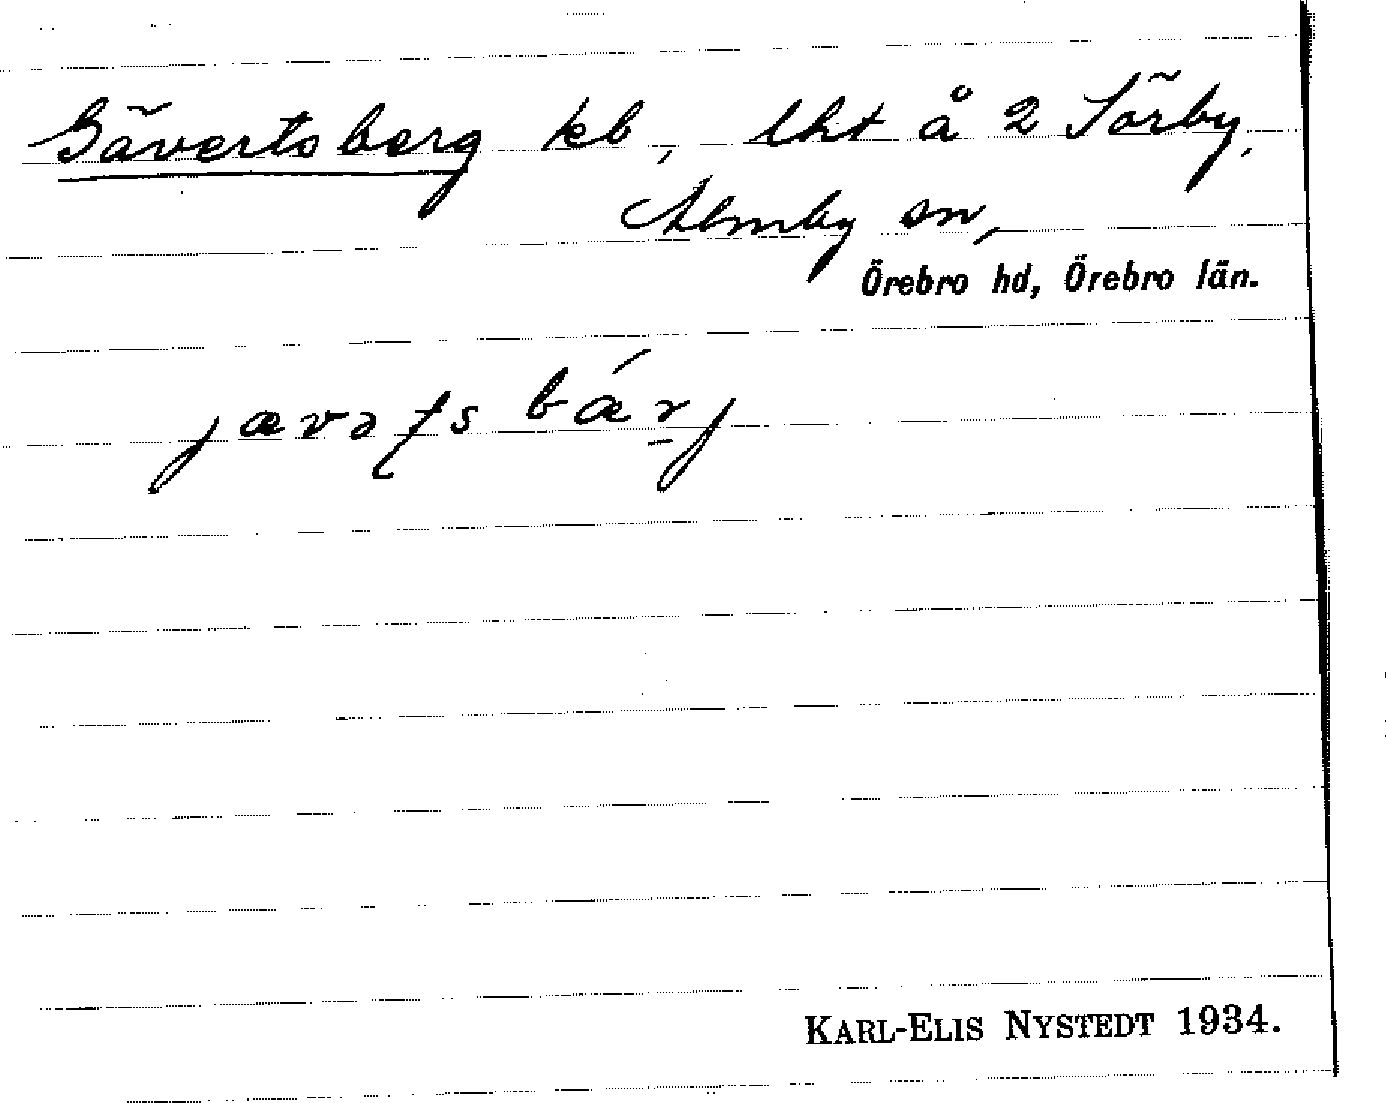 Gävertsberg kb, lht å 2 Sörby,
Almby sn,
Örebro hd, Örebro län.
KARL-ELIS NYSTEDT 1934.